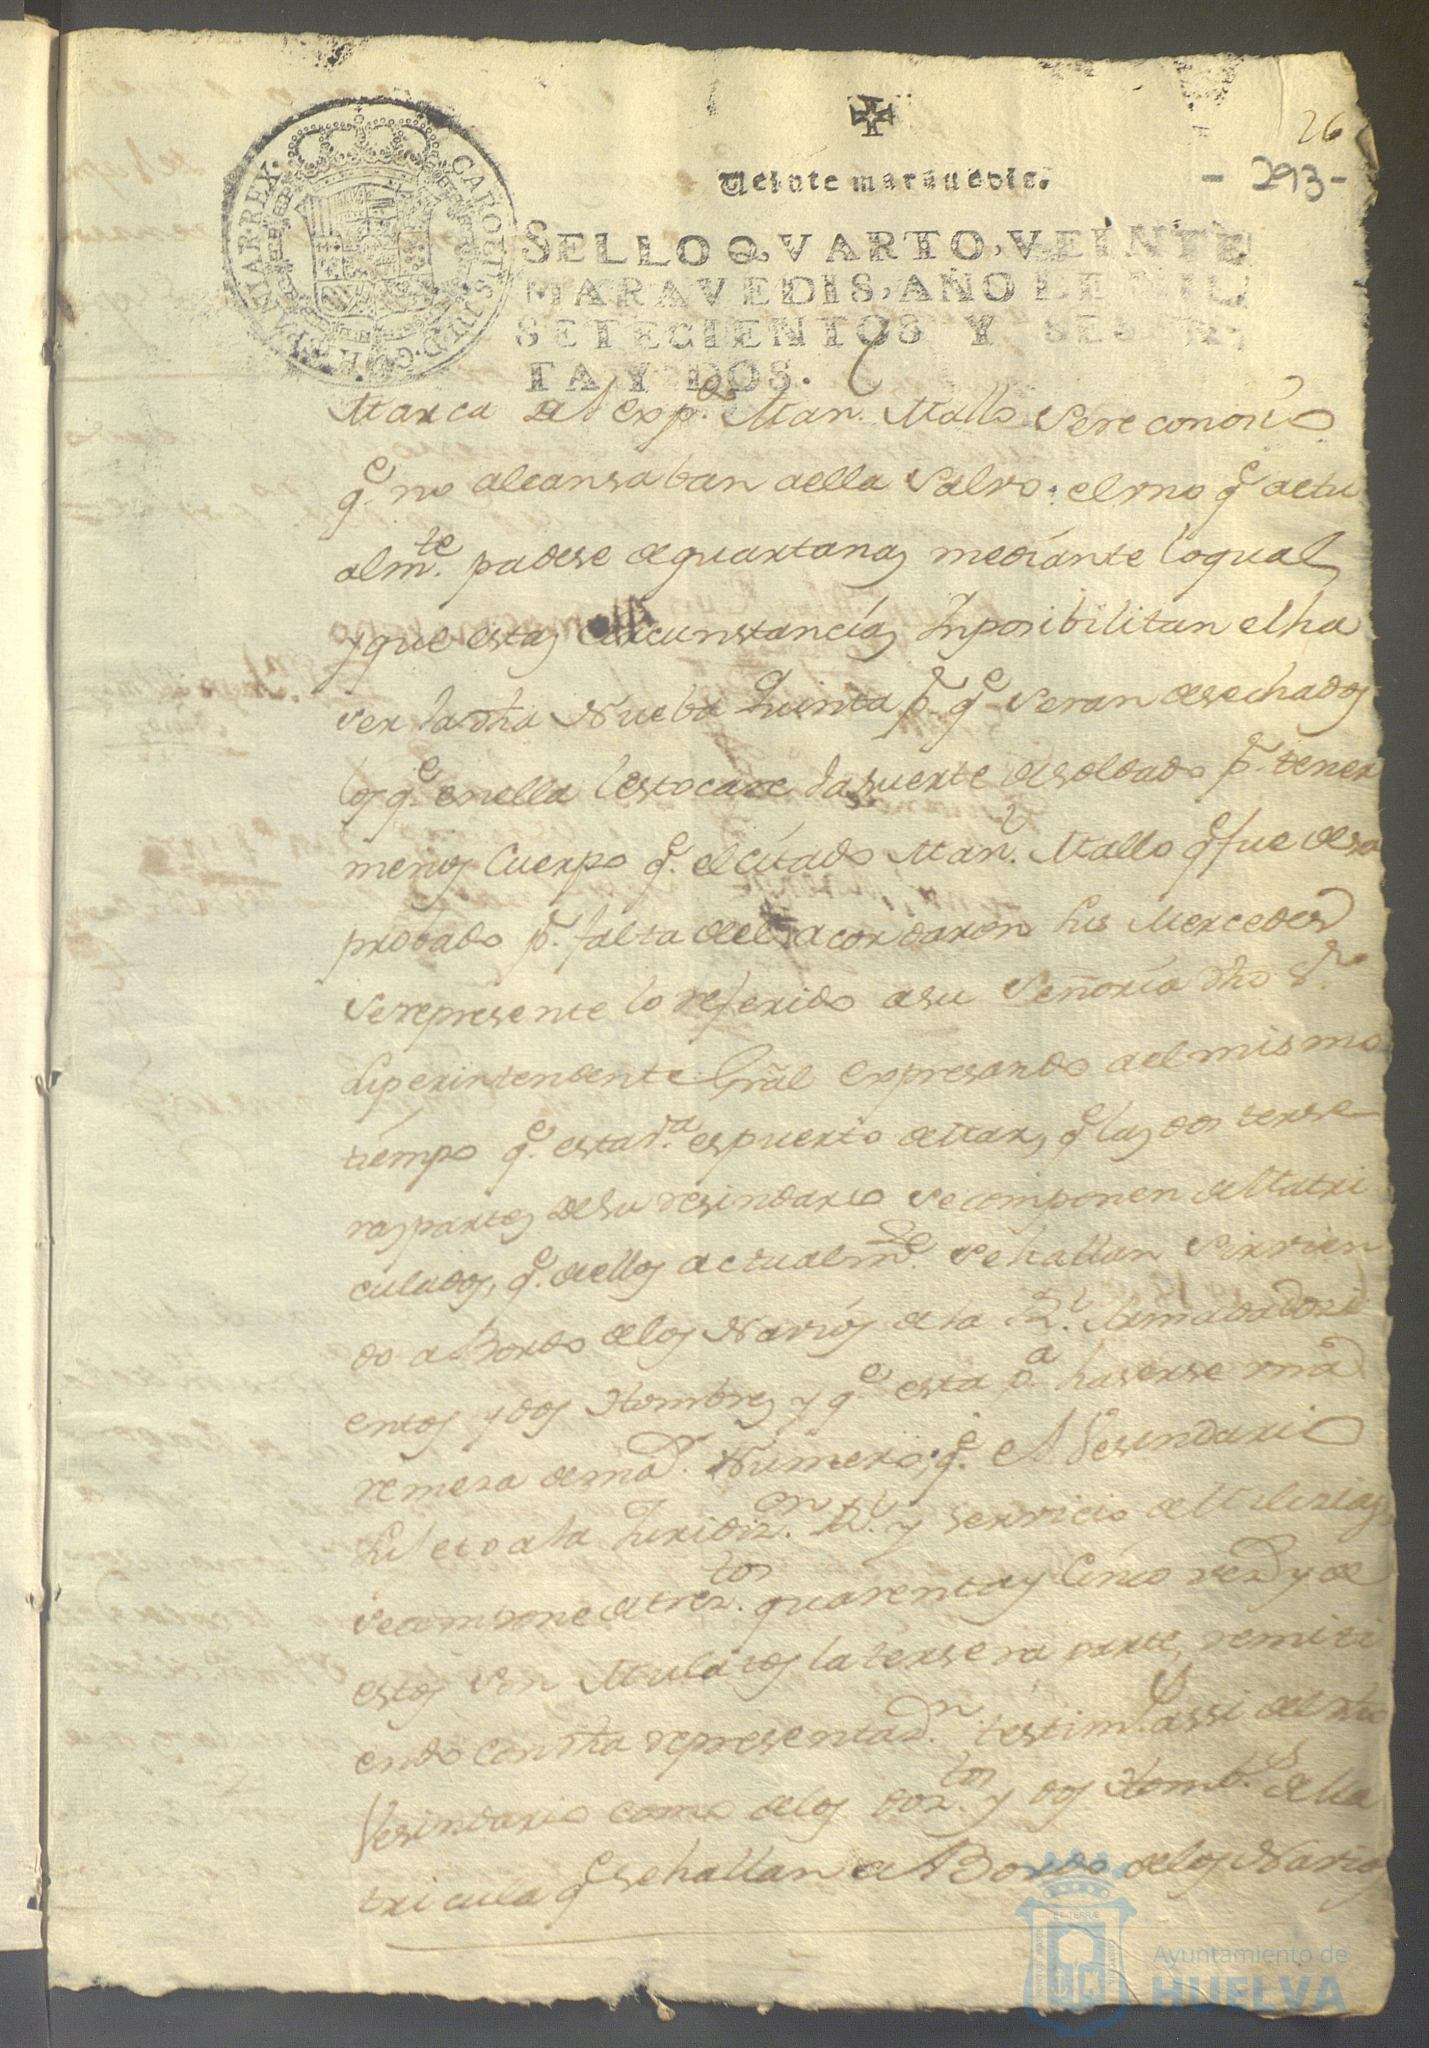 26
- 293 -
Veinte maravedis.
CAROLUS III D. G. HISPANIAR. REX.
SELLO QVARTO, VEINTE
MARAVEDIS, AÑO DE MIL
SETECIENTOS Y SESEN-
TA Y DOS.
Marca del exp.do Man. Mallo se reconoció
q.e no alcansaban aella salvo el vno q.e actu
alm.te padese de quartanas mediante lo qual
y que estas circunstancias Inposibilitan el ha
ser la dha Nueba Quinta p.r q.e seran desechados
los q.e en ella les tocare la suerte de soldado p.r tener
menos Cuerpo q.e el citado Man.l Mallo q.e fue desa
probado p.r falta del acordaron sus Mercedes
se represente lo referido a su Señoria dho S.r
Superintendente Gral expresando al mismo
tiempo q.e esta v.a es puerto de Mar, q.e las dos terse
ras partes de su vesindario se componen de Matri
culados, q.e de ellos actualm.te se hallan sirvien
do a Bordo de los Navios de la R.l Armada dozi
entos y dos Hombres y q.e esta p.a haserse vna
remesa de ma.r Numero; q.e el Vesindario
sujeto a la Juridiz.on R.l y servicio de Milizias
se compone de trez.tos quarenta y Cinco vez.s y de
estos son Mulatos la tersera parte, remiti
endo con dha representaz.n testim.s assi del dho
Vesindario como de los doz.tos y dos Homb.s de Ma
tricula q.e se hallan a Bordo de los Navios
Ayuntamiento de
HUELVA